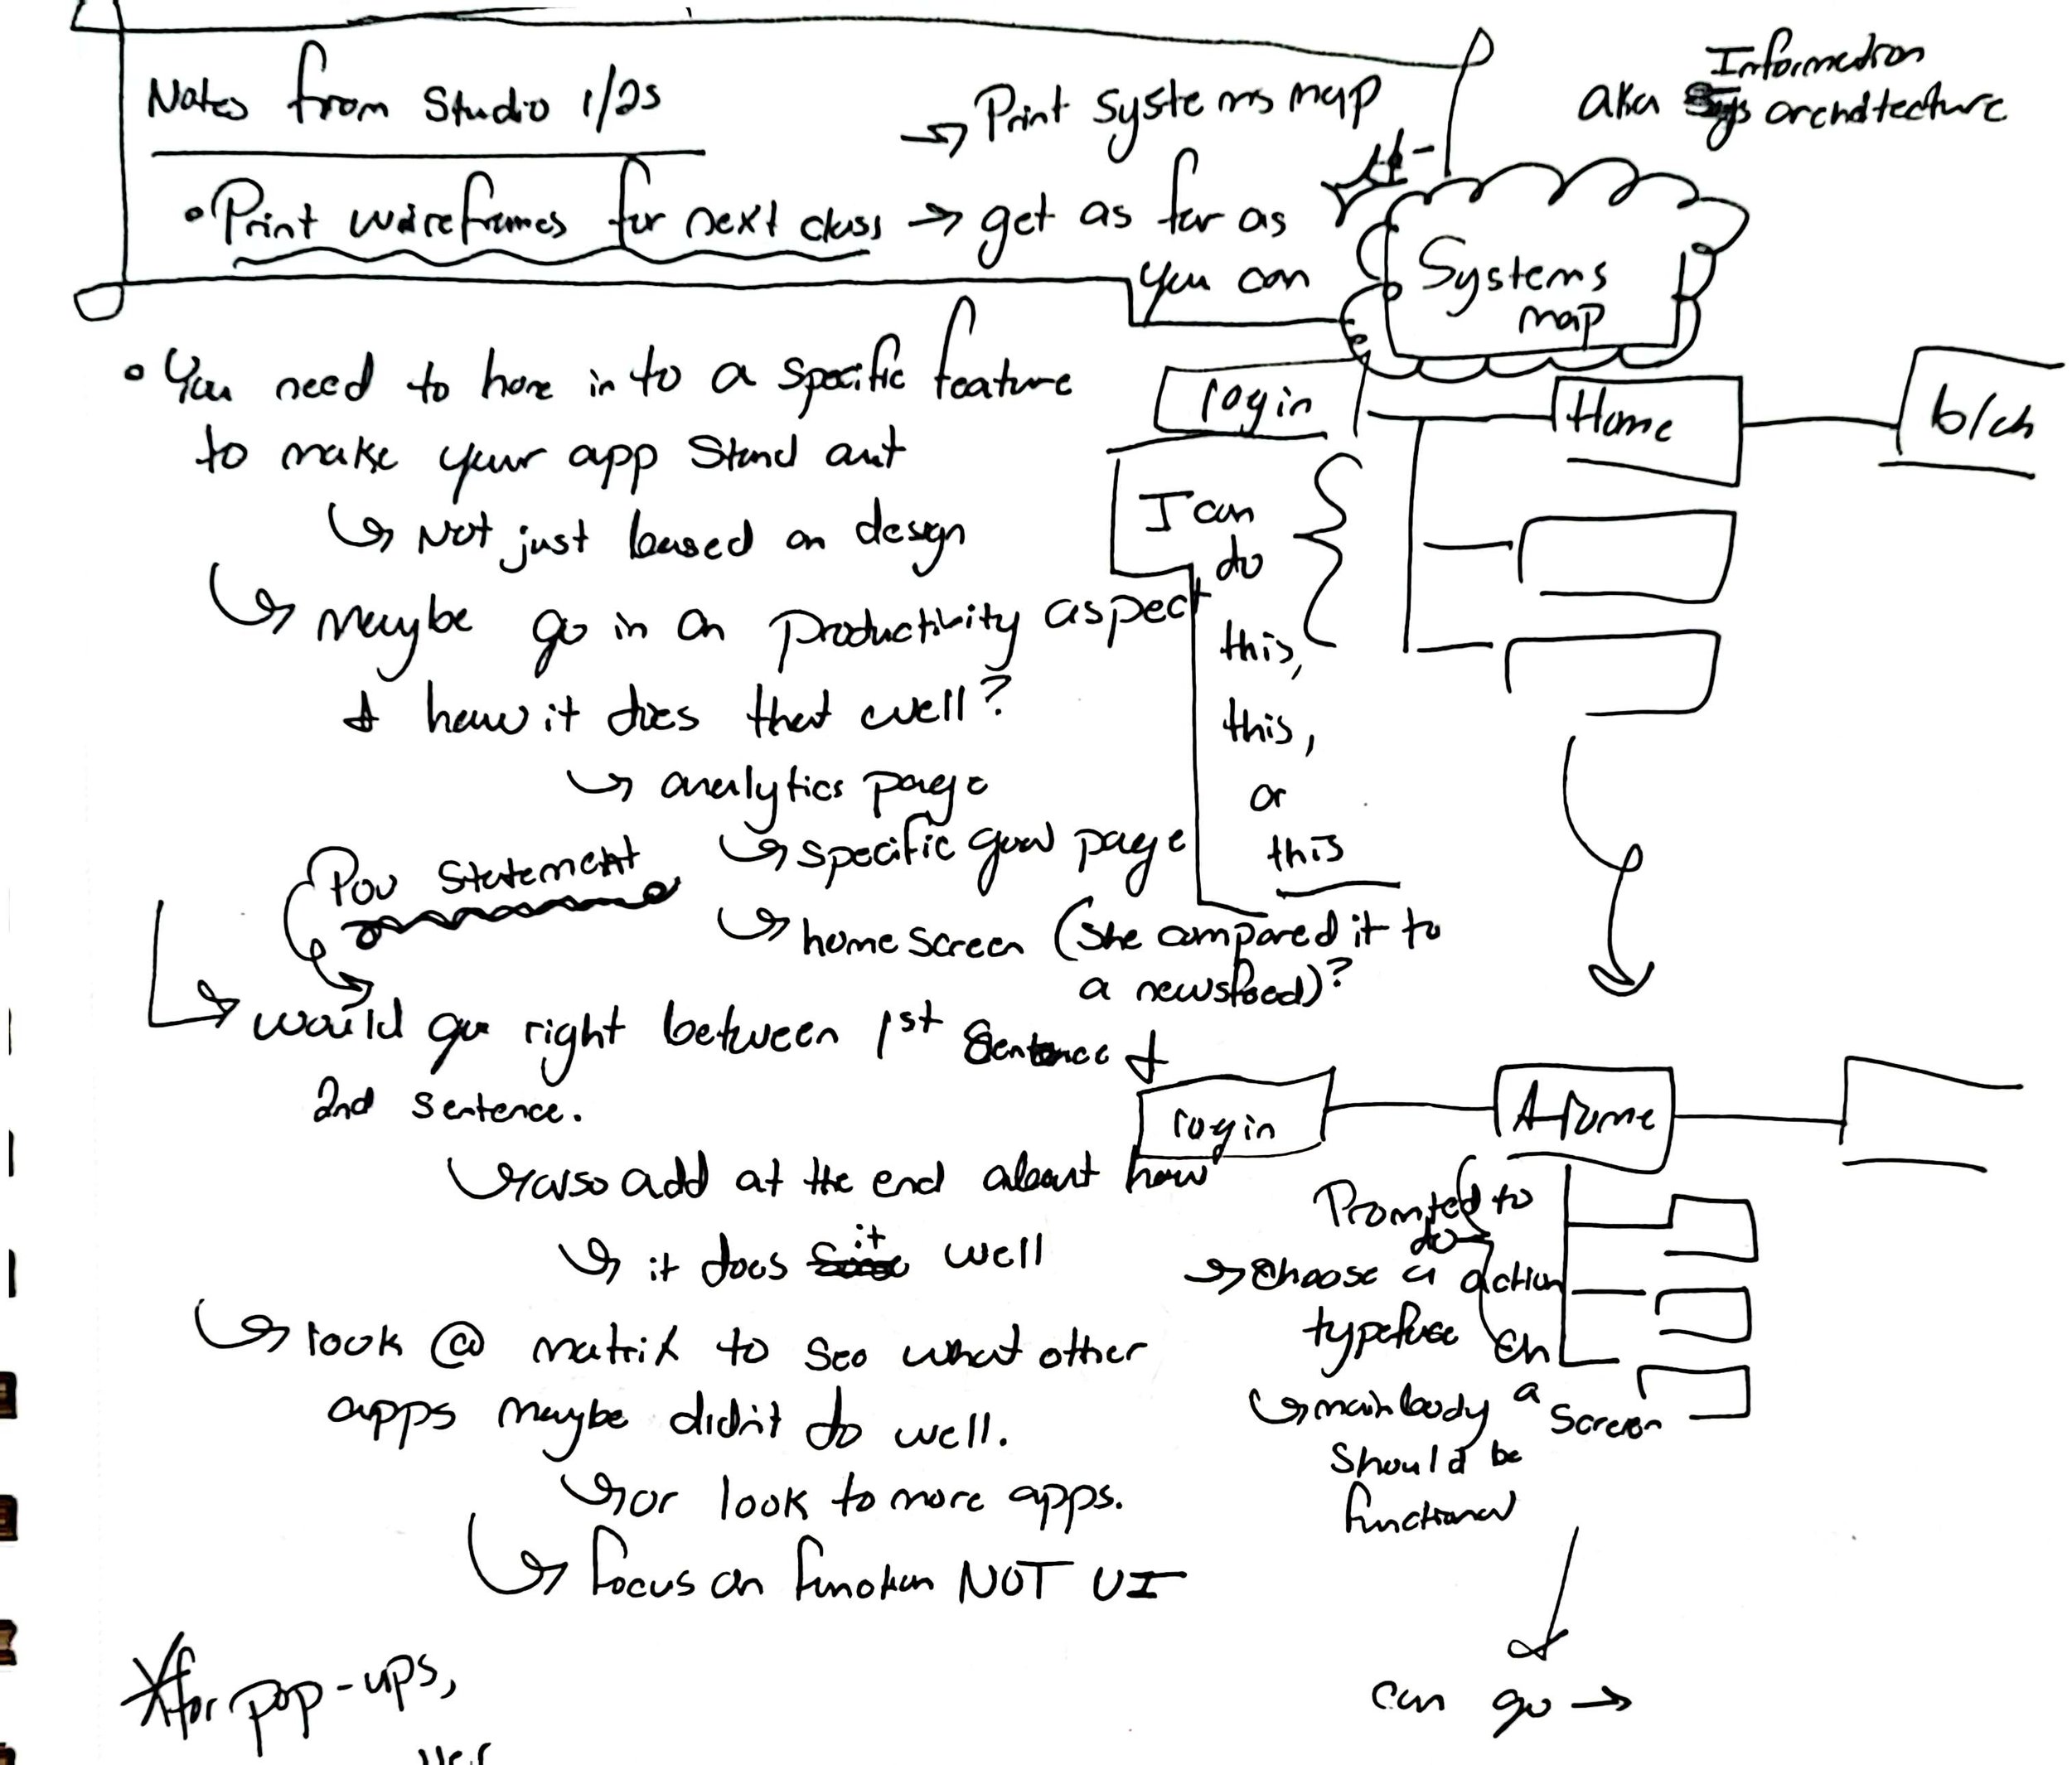 Notes from Studio 1/2s
→ Print systems map
aka Information architecture
• Print wireframes for next class → get as far as
you can
Systems
map
• You need to hone in to a specific feature
to make your app stand out
↳ Not just based on design
↳ Maybe go in on productivity aspect
& how it does that well?
↳ analytics page
↳ specific goal page
↳ home screen (she compared it to
a newsfeed)?
POV statement
↳ would go right between 1st sentence &
2nd sentence.
↳ also add at the end about how
↳ it does it well
↳ look @ matrix to see what other
apps maybe didn't do well.
↳ or look to more apps.
↳ focus on function NOT UI
*for pop-ups,
login
Home
b/ch
I can
do
this,
this,
or
this
login
Home
Promted to
do
action
on
a
screen
→ choose a
typeface
↳ main body
should be
functional
can go →